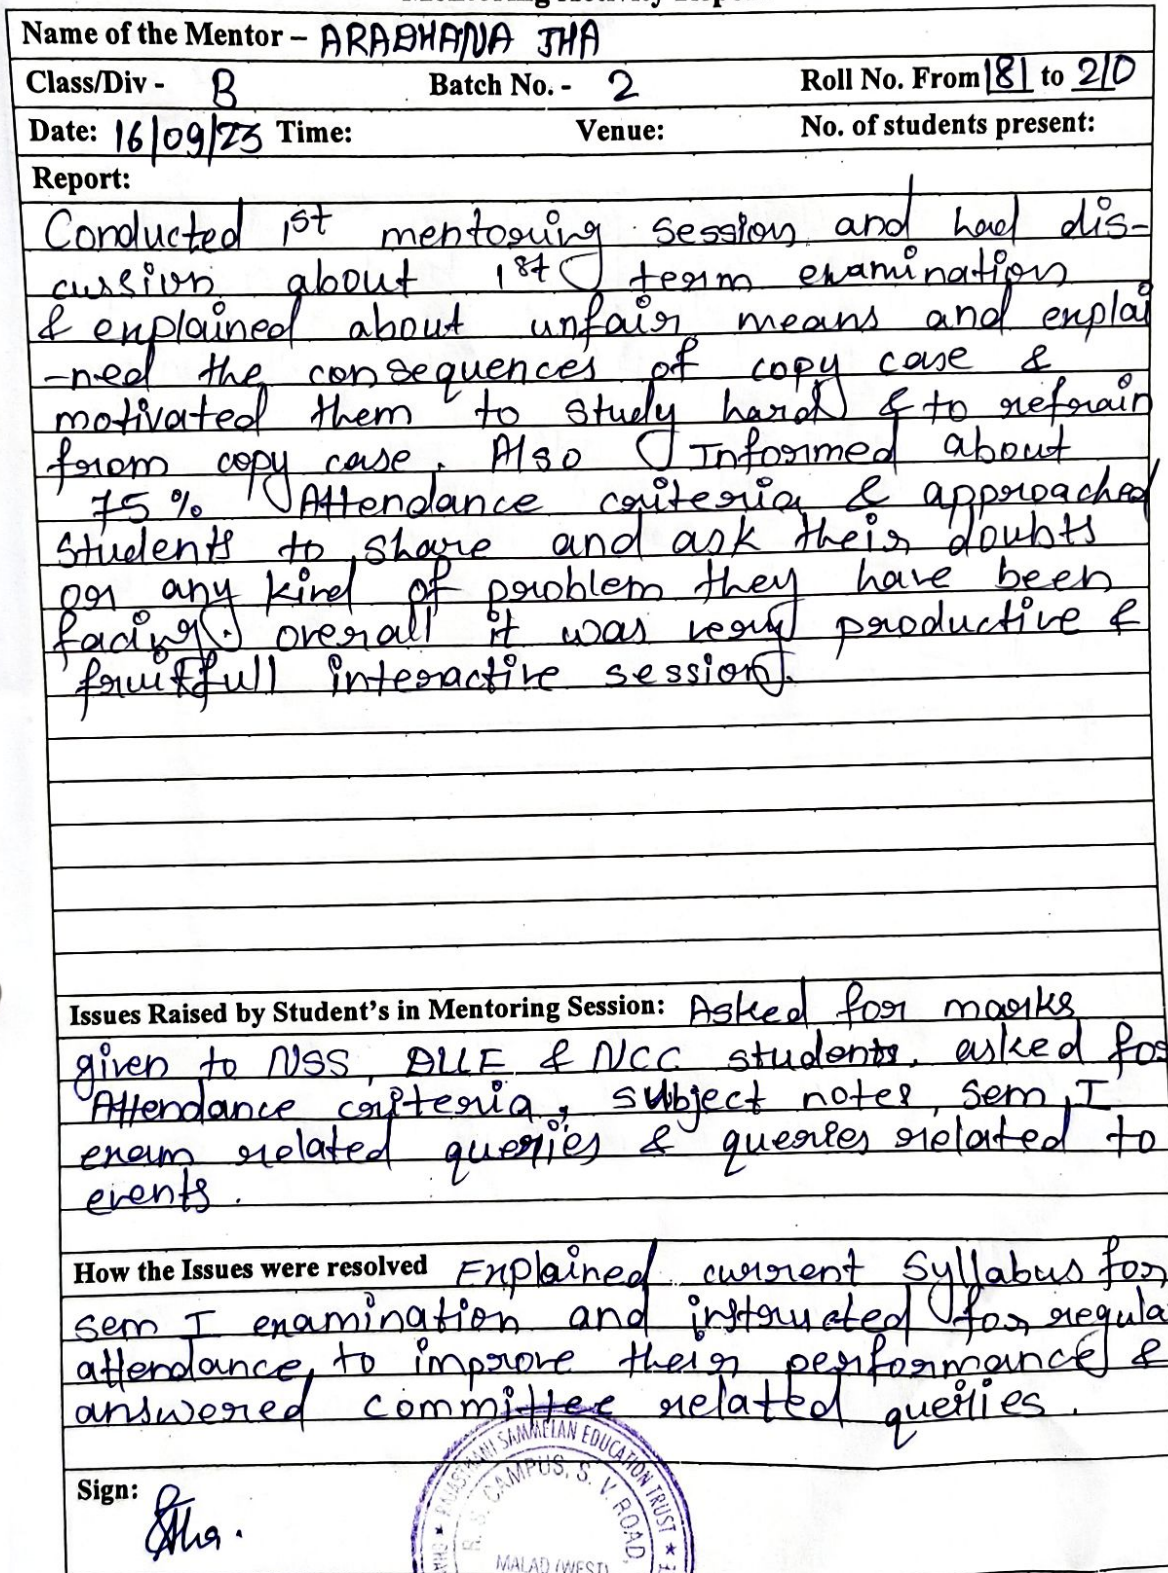 Name of the Mentor – ARADHANA JHA
Class/Div - B Batch No. - 2 Roll No. From 181 to 210
Date: 16/09/23 Time: Venue: No. of students present:
Report:
Conducted 1st mentoring session and had dis-
cussion about 1st term examination
& explained about unfair means and explai
-ned the consequences of copy case &
motivated them to study hard & to refrain
from copy case. Also Informed about
75% Attendance criteria & approached
students to share and ask their doubts
or any kind of problem they have been
facing. overall it was very productive &
fruitfull interactive session.
Issues Raised by Student's in Mentoring Session: Asked for marks
given to NSS, DLLE & NCC students, asked for
Attendance criteria, subject notes, sem I
exam related queries & queries related to
events.
How the Issues were resolved Explained current Syllabus for
sem I examination and instructed for regula
attendance, to improve their performance &
answered committee related queries.
Sign:
Jha.
RAJASTHANI SAMMELAN EDUCATION TRUST
CAMPUS, S. V. ROAD,
MALAD (WEST)